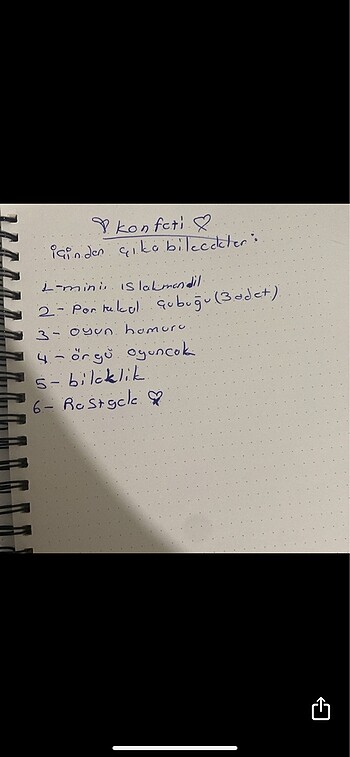 ♡ Konfeti ♡
içinden çıkabilecekler:
1-mini ıslakmendil
2- Portakal Çubuğu (3 adet)
3- oyun hamuru
4- örgü oyuncak
5- bileklik
6- Rastgele ♡